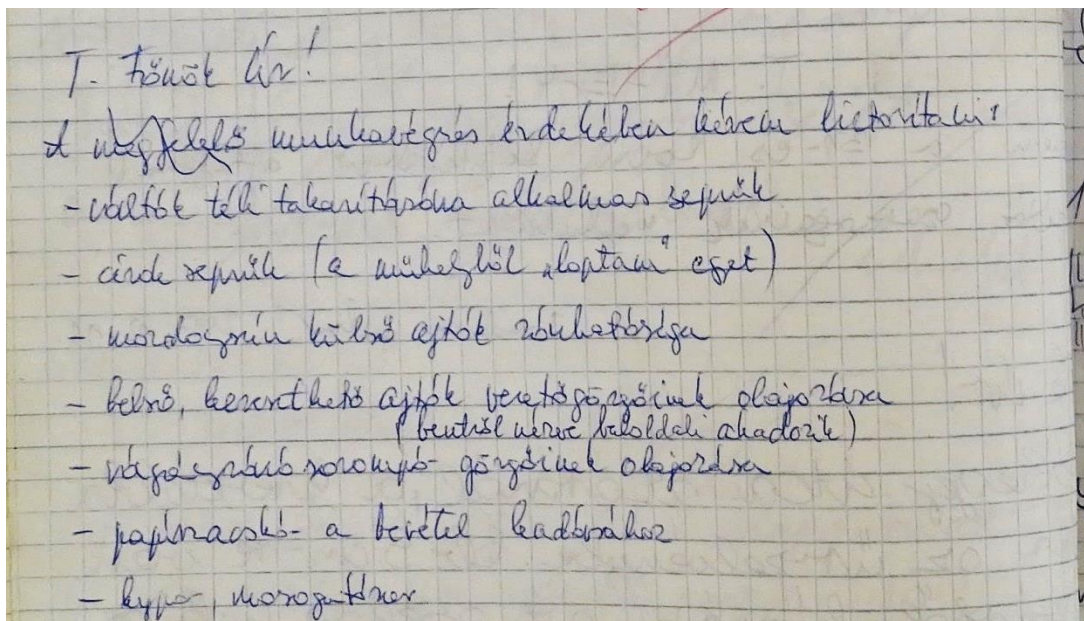 T. Főnök Úr!
A megfelelő munkavégzés érdekében kérem biztosítani:
- váltók téli takarítására alkalmas seprűk
- cirok seprűk (a műhelyből „loptam" egyet)
- mozdonyszín külső ajtók zárhatósága
- belső, kereszthető ajtók vezetőgörgőinek olajozása
(bentről nézve baloldali akadozik)
- vágányzáró sorompó görgőinek olajozása
- papírzacskó - a bevétel leadásához
- hypo, mosogatószer